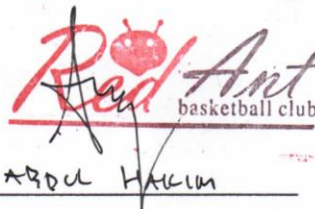 Red Ant
basketball club
ABDUL HAKIM